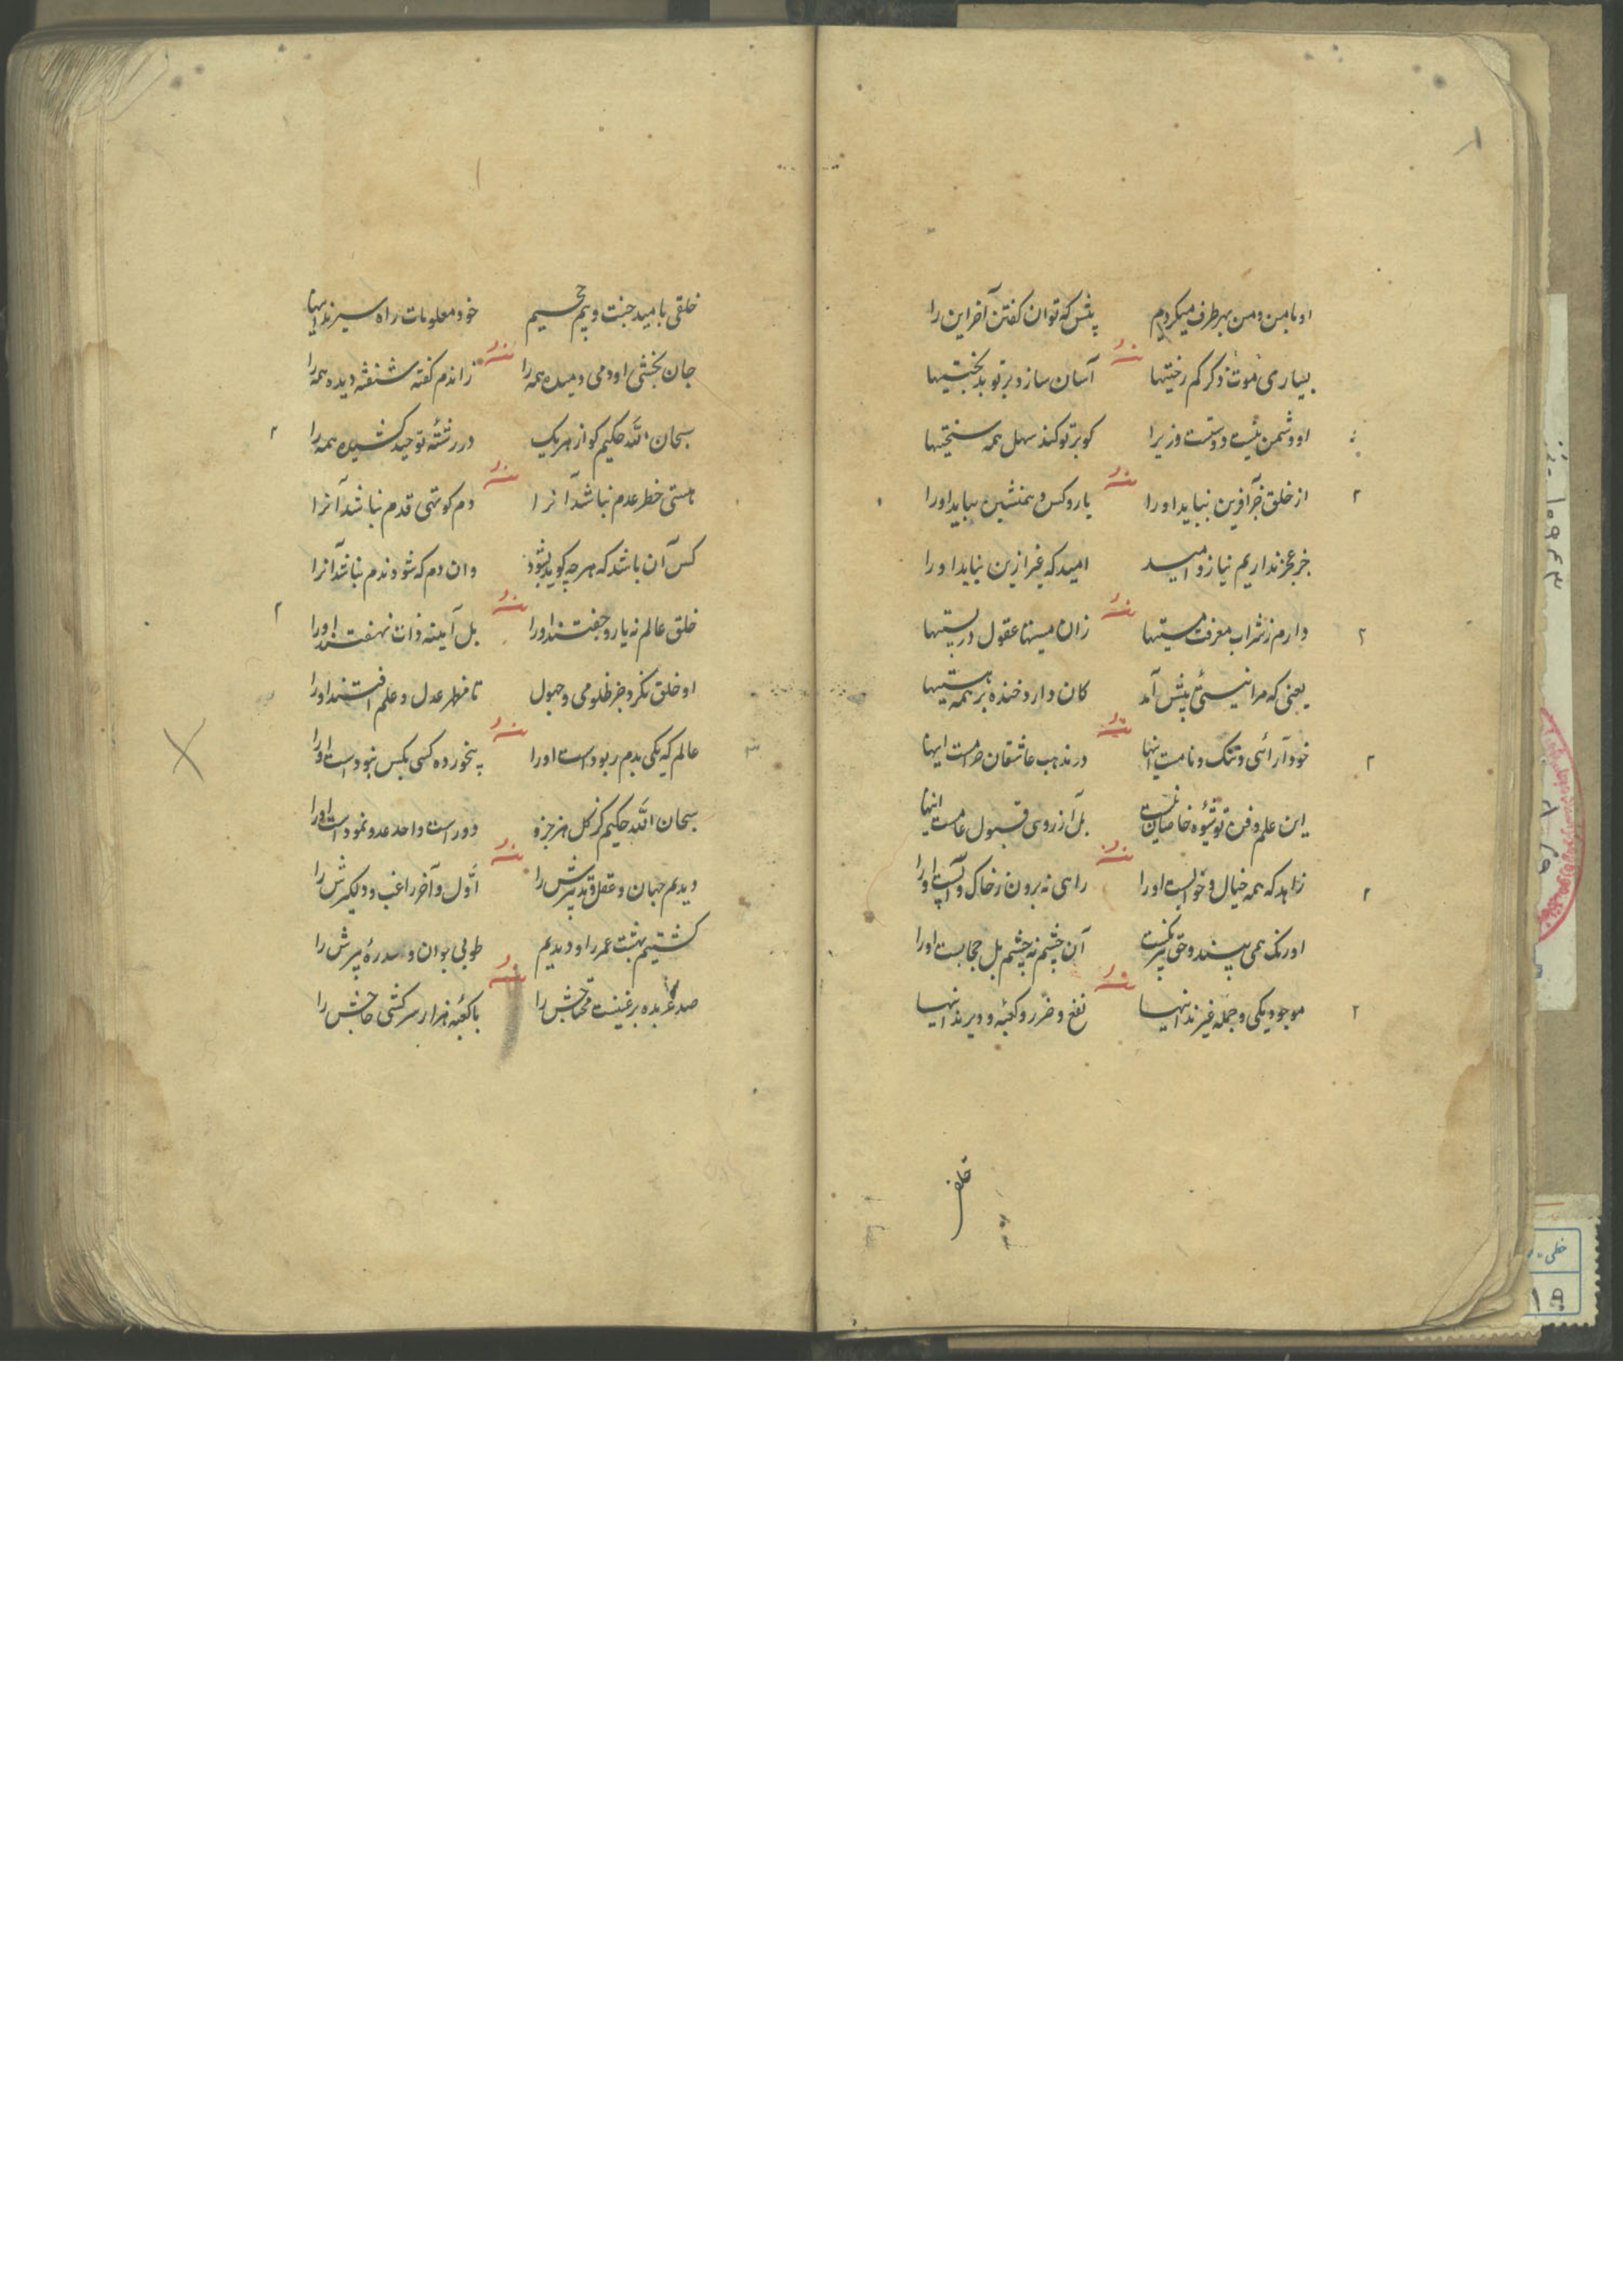 او با من و من بهر طرف میگردم پیش که توان گفتن آخر این را
بسیاری موت ذکر کم رختیها آسان سازد بر تو بدبختیها
او دشمن نیست دوستت وزیرا کو بر تو کند سهل همه سختیها
از خلق جز آفرین نباید او را یار و کس و همنشین نباید او را
جز عجز نداریم نیاز و امید امید که غیر ازین نیاید او را
دارم ز شراب معرفت مستیها زان میستها عقول در پستیها
یعنی که مرا نیستئی پیش آمد کان دارد خنده بر همه هستیها
خود آرائی و ننگ و نامست اینها در مذهب عاشقان حرامست اینها
این علم و فن تو شیوه خاصان نیست بل از روی قبول عامست اینها
زاهد که همه خیال و خوابست او را راهی نه برون ز خاک و آبست او را
او رنگ همی بیند و حق بیرنگست آن چشم نه چشم بل حجابست او را
موجود یکی و جمله غیرند اینها نفع و ضرر و کعبه و دیرند اینها
خلقی
خلقی بامید جنت و بیم جحیم خود معلومات راه سیرند اینها
جان بخشی او دمی دمیده همه را زاندم گفته شنفته دیده همه را
سبحان الله حکیم کو از هر یک در رشته توحید کشیده همه را
هستی خطر عدم نباشد آنرا دم کوتهی قدم نباشد آنرا
کس آن باشد که هر چه گوید بشود وان دم که شود ندم نباشد آنرا
خلق عالم نه یار و جفتند او را بل آینه ذات نهفتند او را
او خلق نکرد جز ظلومی و جهول تا مظهر عدل و علم افتند او را
عالم که یکی بدم ربودست او را پیخورده کسی بکس نبودست او را
سبحان الله حکیم کز کل هر جزو دورست واحد عدد نمودست او را
دیدیم جهان و عقل و تدبیرش را اول و آخر راغب و دلگیرش را
کشتیم بهشت عمر را و دیدیم طوبی جوان و سدره پیرش را
صد عربده بر غنیست محتاجش را با کعبه هزار سرکشی حاجش را